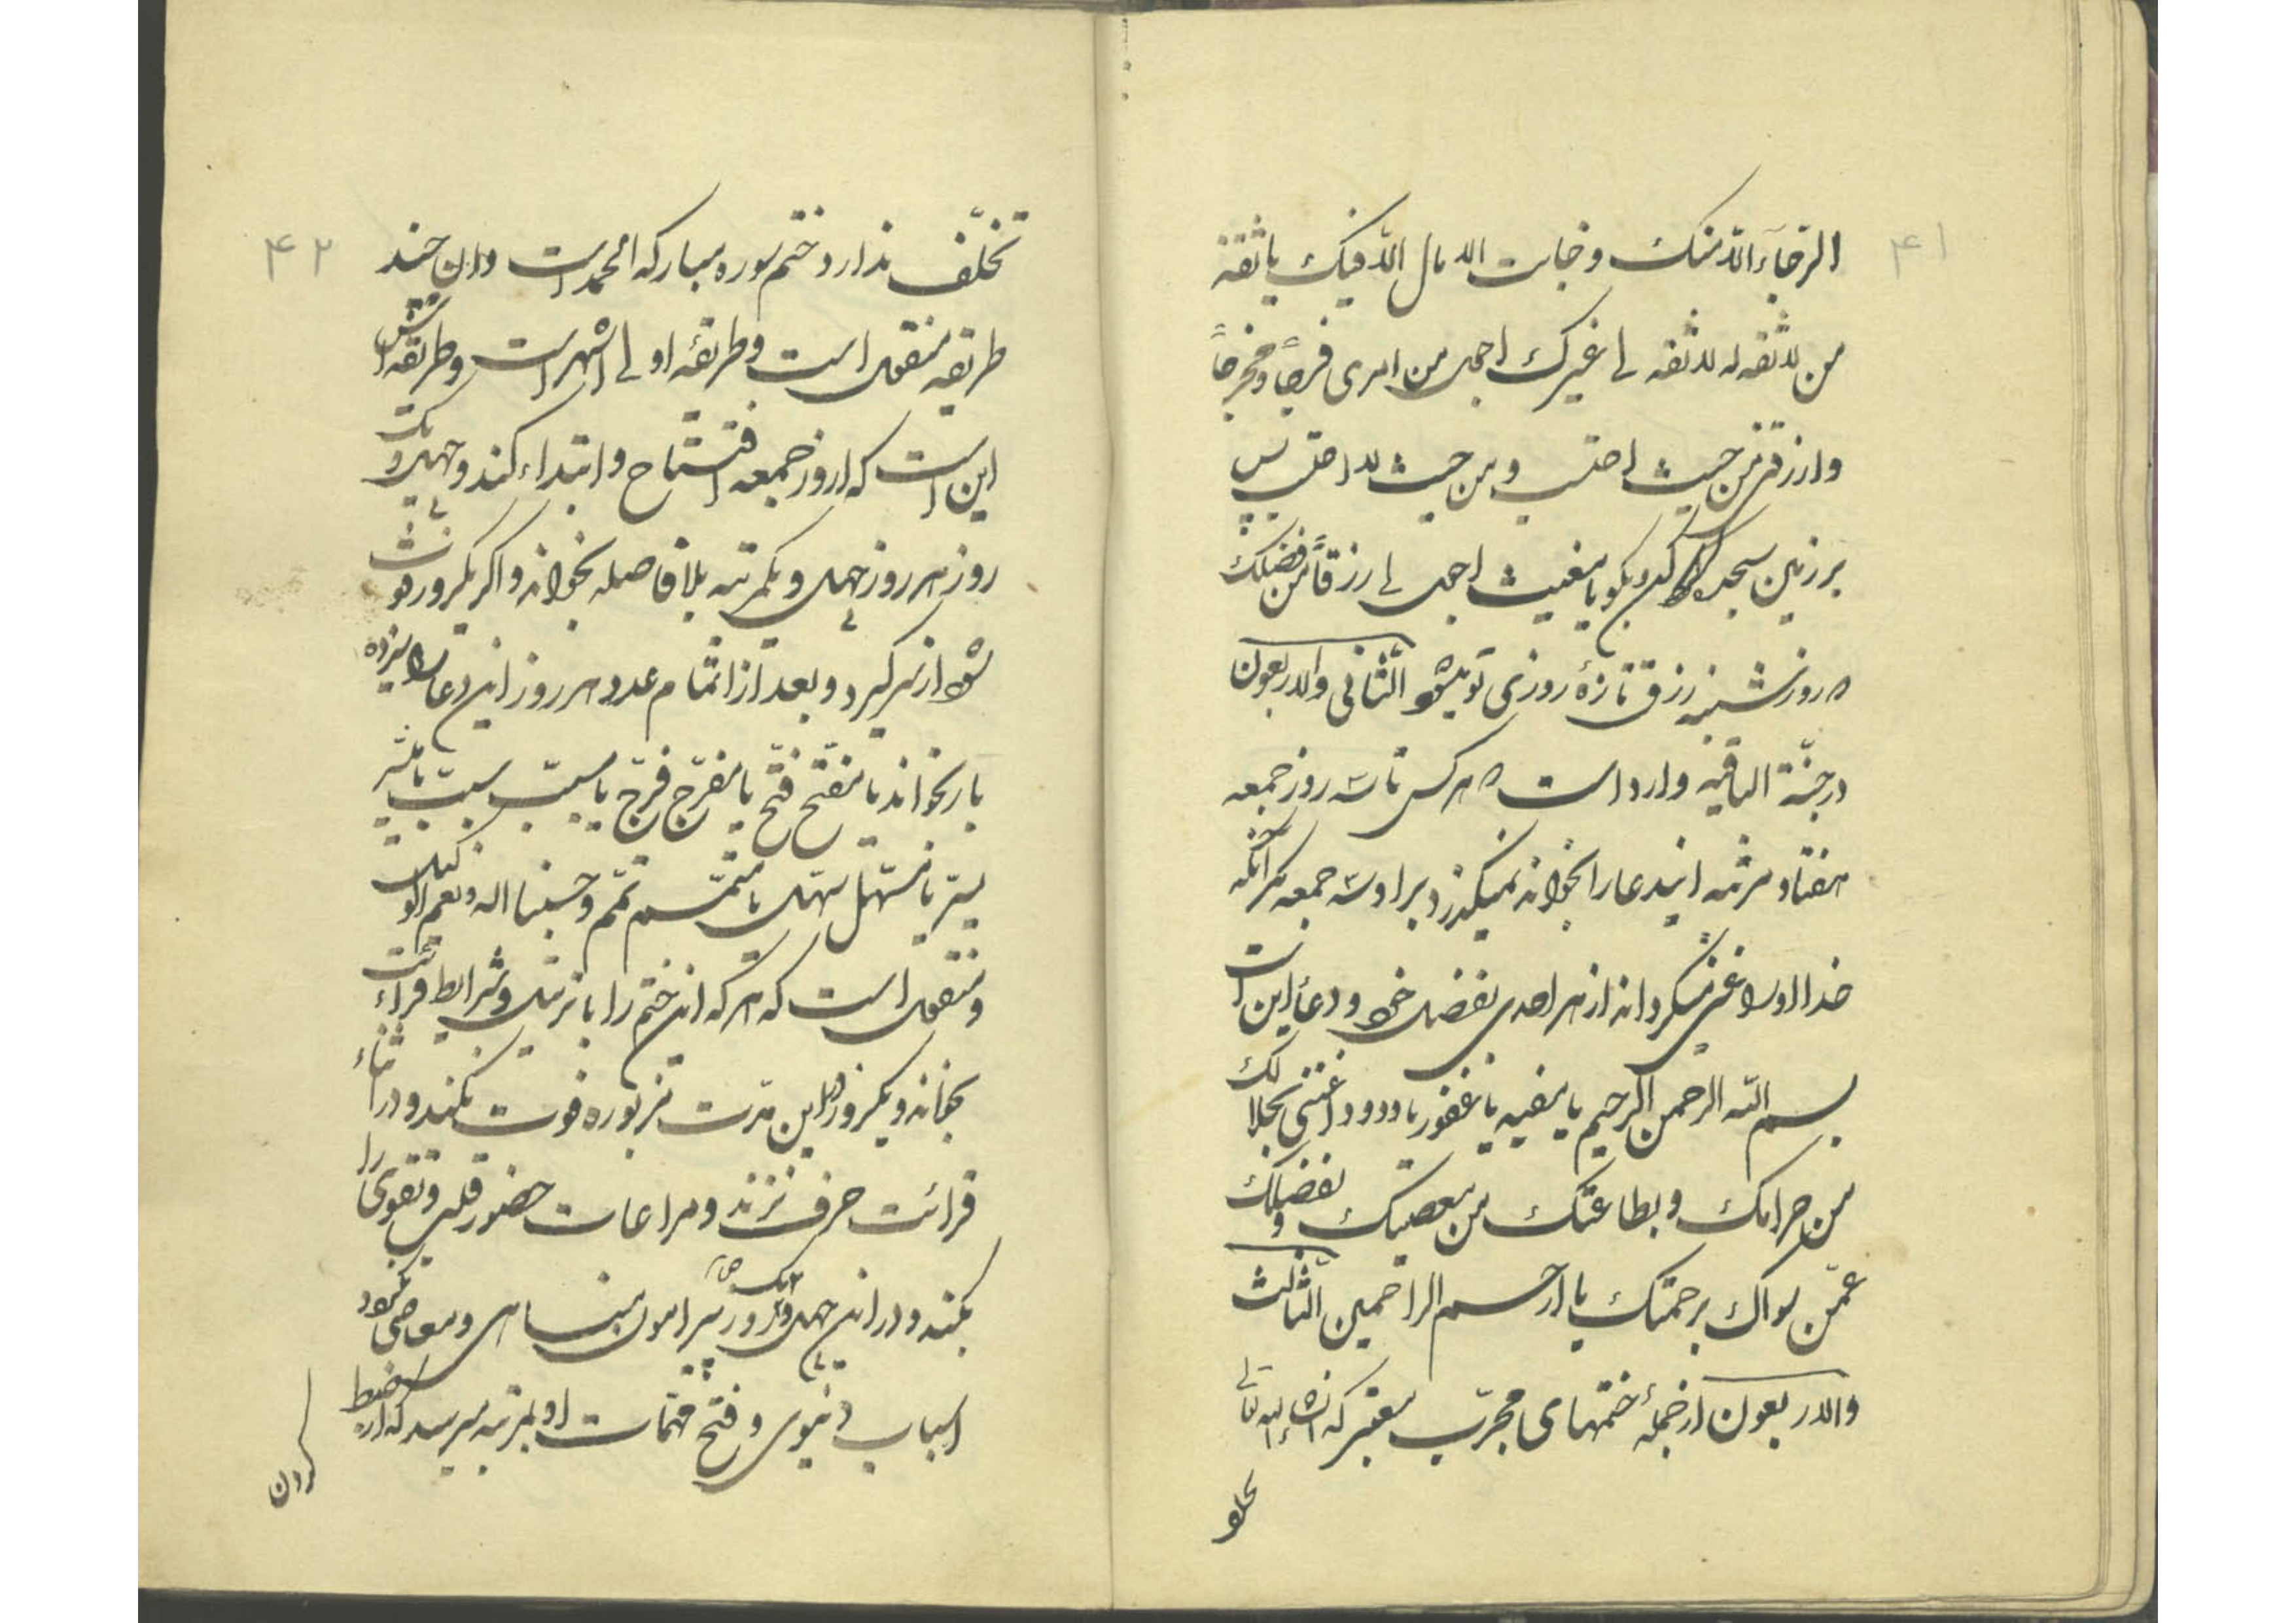 ۴۱
الرجآء الا منک وخابت الامال الا فیک یا ثقة
من لا ثقه له لا ثقه لی غیرک اجعل من امری فرجاً و مخرجاً
وارزقنی من حیث احتسب ومن حیث لا احتسب پس
بر زمین سجده کن و بکو یا مغیث اجعل لی رزقاً من فضلک
روز شنبه رزق تازهٔ روزی تو میشود الثانی والاربعون
در جنّة الباقیه وارد است هرکس تا سه روز جمعه
هفتاد مرتبه ایندعا را بخواند نمیکذرد بر او سه جمعه مکر آنکه
خدا او را غنی میکرداند از هر احدی بفضل خود و دعا این است
بسم الله الرحمن الرحیم یا یا غفور یا ودود اغننی بحلالک
من حرامک وبطاعتک من معصیتک وبفضلک
عمّن سواک برحمتک یا ارحم الراحمین الثالث
والاربعون از جملهٔ ختمهای مجرّب معتبر که انشاءالله تعالی
تخلف
۴۲
تخلّف ندارد ختم سوره مبارکه الحمد است وان چند
طریقه منقول است وطریقه اولی اشهر است وطریقه اش
این است که از روز جمعه افتتاح وابتداء کند و چهل و یک
روز هر روز چهل و یکمرتبه بلا فاصله بخواند واکر یکروز فوت
شود از سر کیرد وبعد از اتمام عدد هر روز این دعا را سیزده
بار بخواند یا مفتّح فتّح یا مفرّج فرّج یا مسبّب سبّب یا میسّر
یسّر یا مسهّل سهّل یا متمّم تمّم وحسبنا الله ونعم الوکیل
ومنقول است که هر که این ختم را با ترتیب وشرایط قرائت
بخواند ویکروز در این مدّت مزبوره فوت نکند ودر اثناء
قرائت حرف نزند ومراعات حضور قلب وتقوی را
بکند ودر این چهل ویک روز پیرامون مناهی ومعاصی نرود
اسباب دنیوی وفتح مهمّات او بمرتبه میرسد که از ضبط
ان